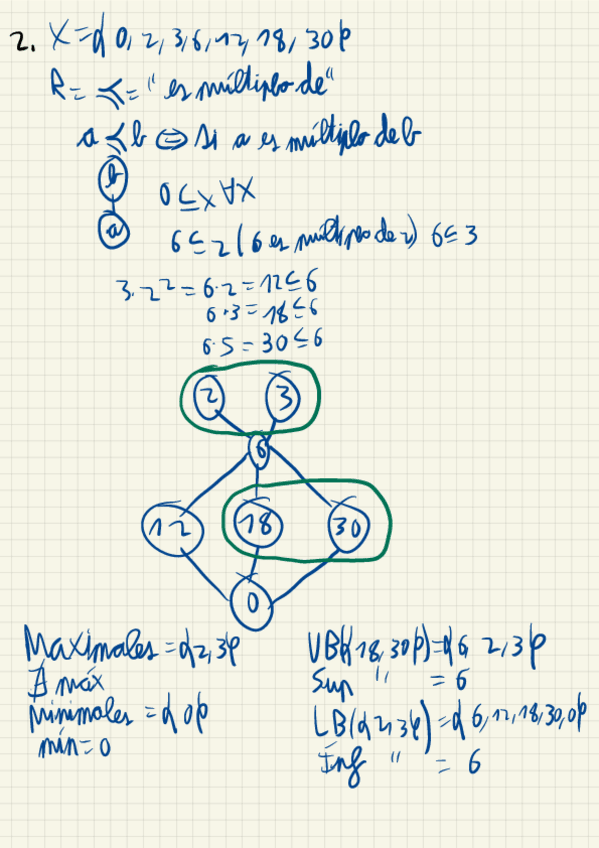 2. X = { 0, 2, 3, 6, 12, 18, 30 }
R = ≼ = "es múltiplo de"
a ≼ b ⇔ Si a es múltiplo de b
b
a
0 ≤ x ∀x
6 ≤ 2 (6 es múltiplo de 2) 6 ≤ 3
3·2² = 6·2 = 12 ≤ 6
6·3 = 18 ≤ 6
6·5 = 30 ≤ 6
2 3
6
12 18 30
0
Maximales = {2, 3}
∄ máx
Minimales = {0}
mín = 0
UB({18, 30}) = {6, 2, 3}
Sup " = 6
LB({2, 3}) = {6, 12, 18, 30, 0}
Inf " = 6